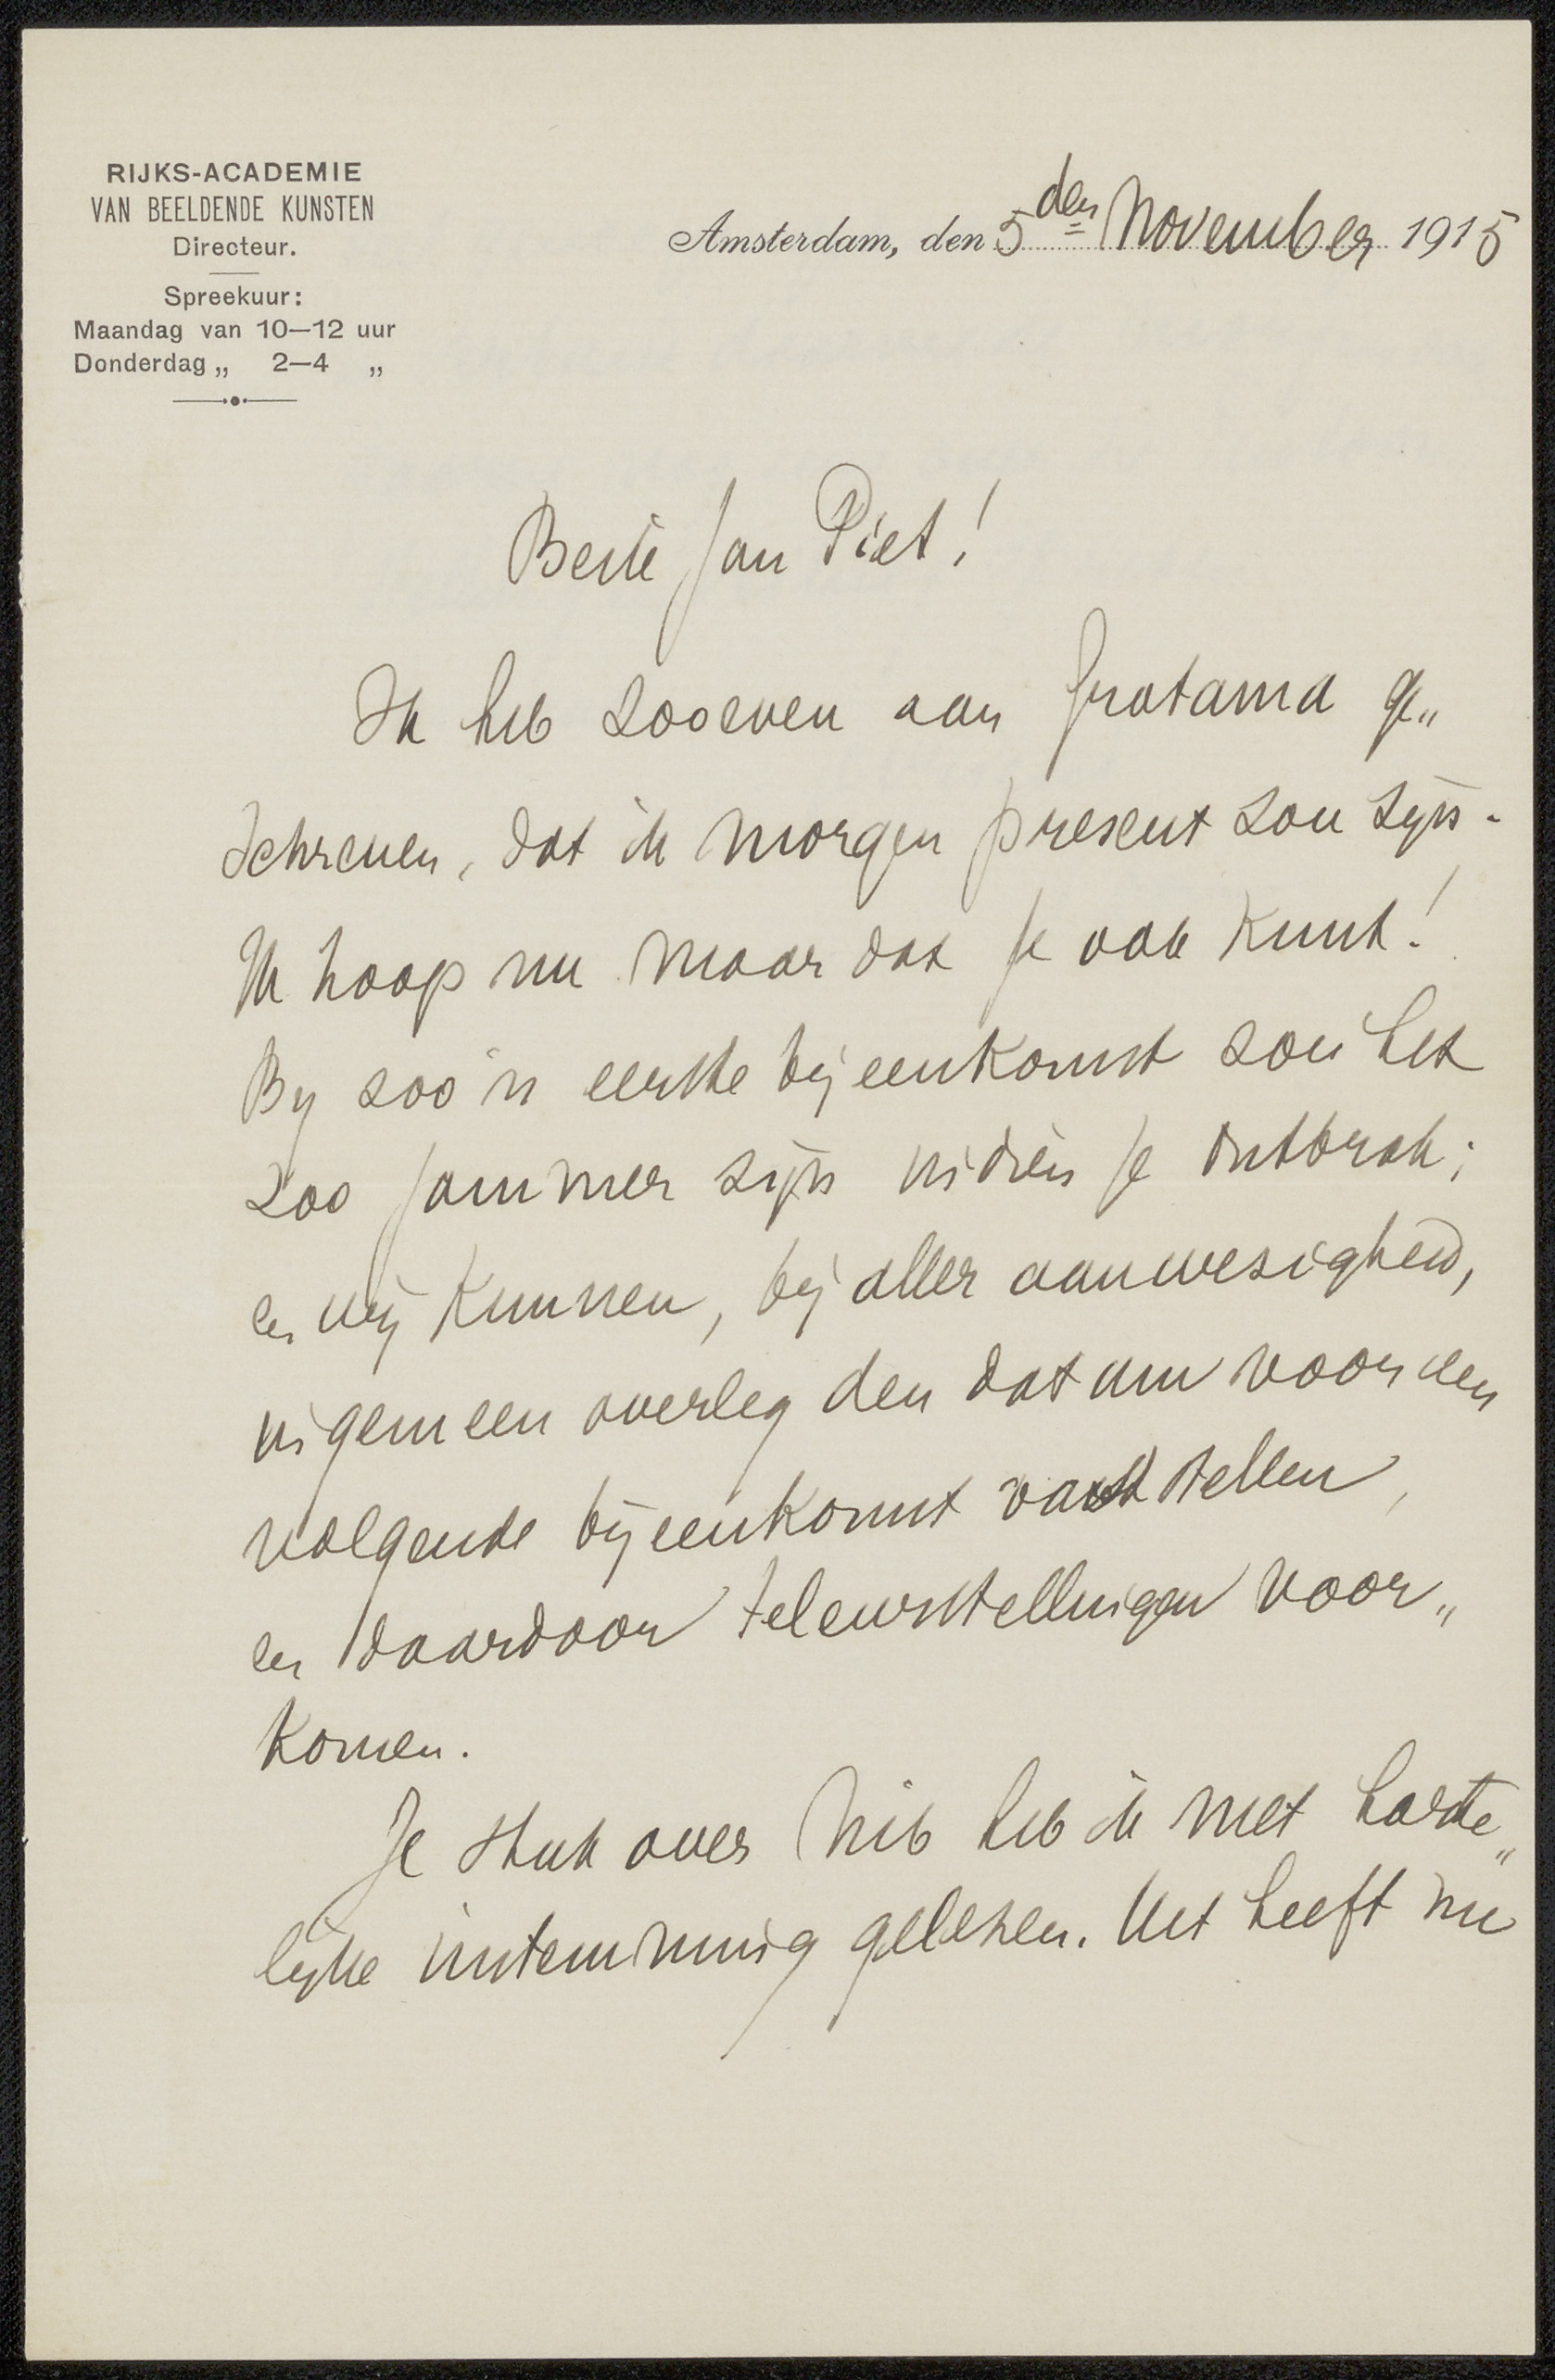 RIJKS-ACADEMIE
VAN BEELDENDE KUNSTEN
Directeur.
Spreekuur:
Maandag van 10—12 uur
Donderdag „ 2—4 „
Amsterdam, den 5den November 1915
Beste Jan Piet!
Ik heb zooeven aan Gratama ge„
schreven, dat ik morgen present zou zijn.
Ik hoop nu maar dat je ook kunt!
By zoo'n eerste bijeenkomst zou het
zoo jammer zijn indien je ontbrak;
en wij kunnen, bij aller aanwezigheid,
in gemeen overleg den datum voor een
volgende bijeenkomst vaststellen,
en daardoor teleurstellingen voor„
komen.
Je stuk over Nib heb ik met harte„
lijke instemming gelezen. Het heeft nu